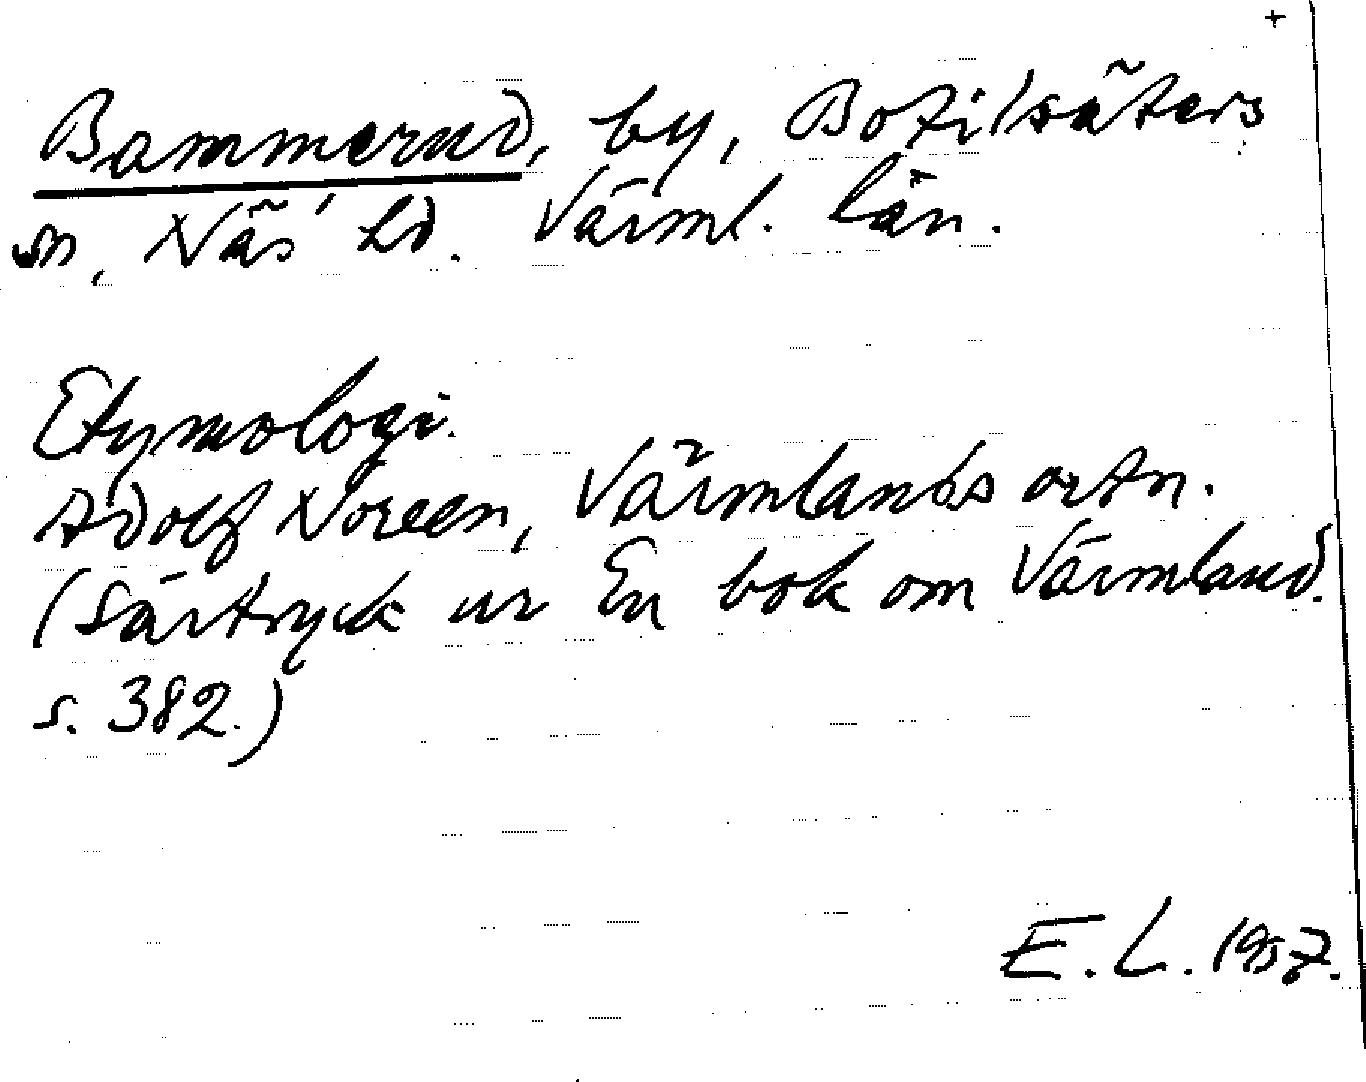 +
Bammerud, by, Botilsäters
sn, Näs' hd. Värml. län.
Etymologi.
Adolf Noreen, Värmlands ortn.
(Särtryck ur En bok om Värmland.
s. 382.)
E. L. 1957.